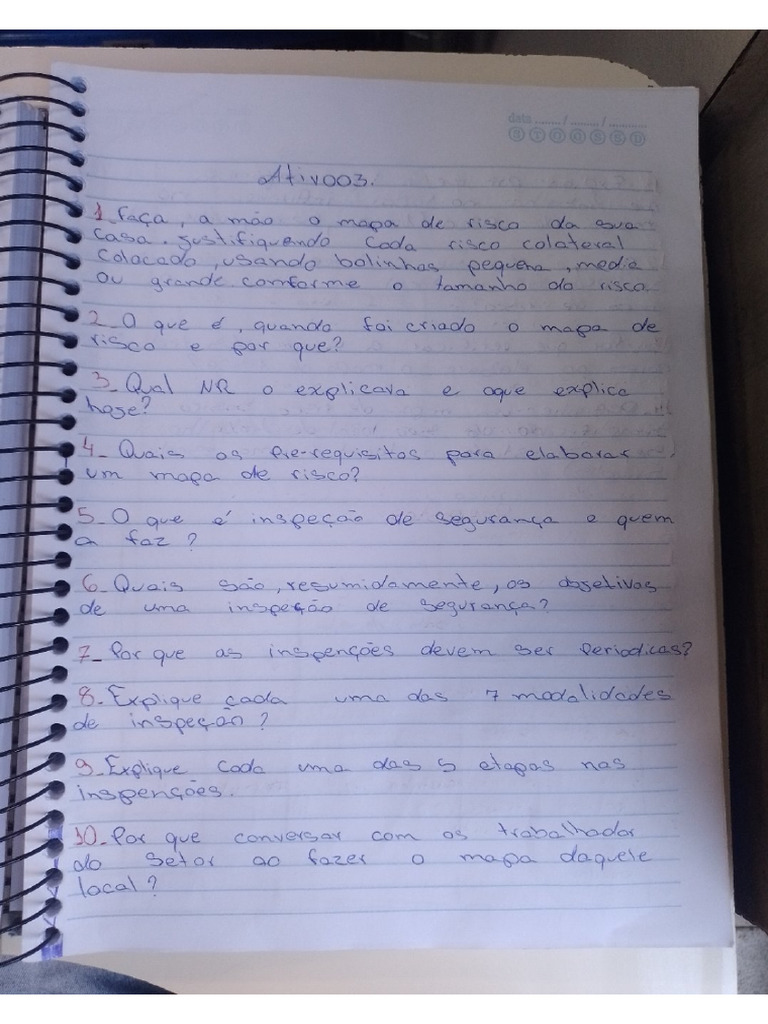 data ......./......./..........
S T Q Q S S D
Ativ003.
1_ Faça, a mão o mapa de risco da sua
casa. justifiquendo cada risco colateral
colocado, usando bolinhas pequena, media
ou grande conforme o tamanho do risco.
2_ O que é, quando foi criado o mapa de
risco e por que?
3_ Qual NR o explicava e oque explica
hoje?
4_ Quais os Pré-requisitos para elaborar
um mapa de risco?
5_ O que é inspeção de segurança e quem
a faz?
6_ Quais são, resumidamente, os objetivos
de uma inspeção de segurança?
7_ Por que as inspenções devem ser Periodicas?
8_ Explique cada uma das 7 modalidades
de inspeção?
9_ Explique cada uma das 5 etapas nas
inspenções.
10_ Por que conversar com os trabalhador
do setor ao fazer o mapa daquele
local?